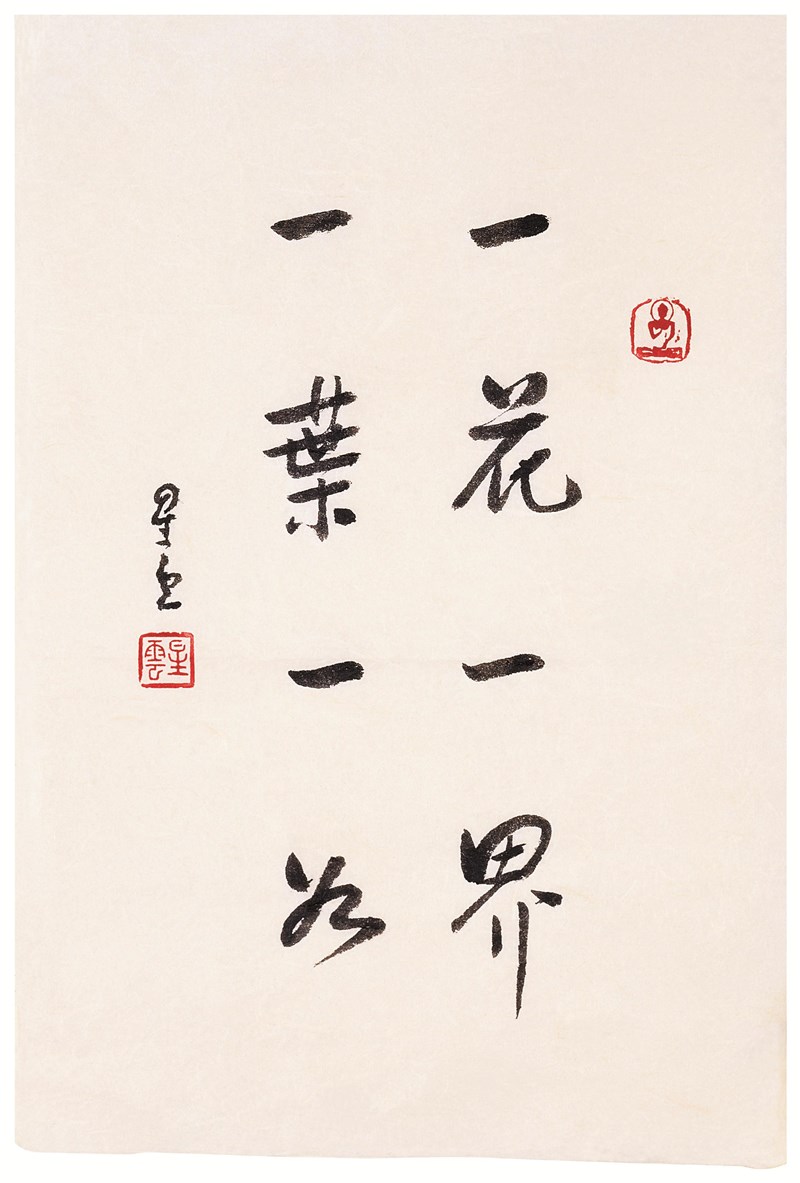 一花一界
一葉一
星雲
星雲